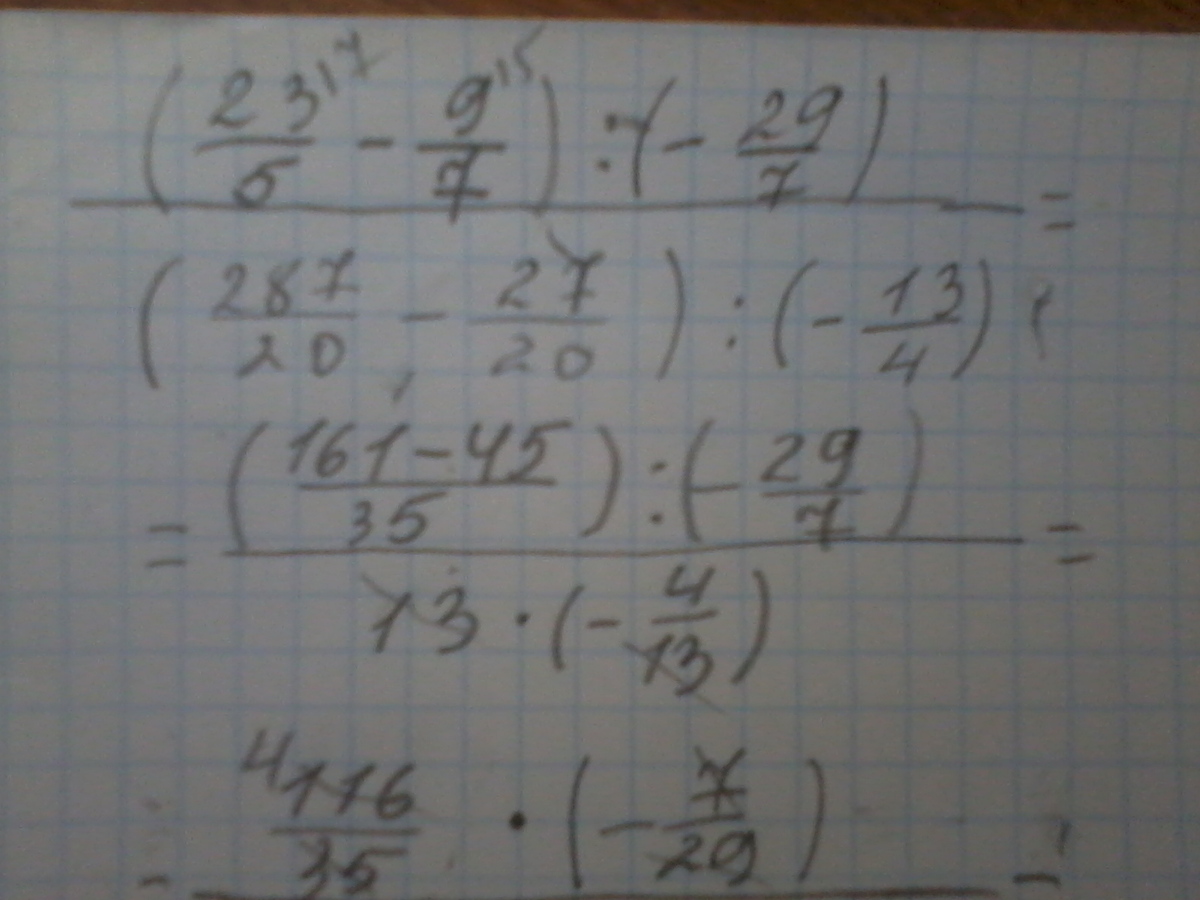 (23/5 ^(17) - 9/7 ^(15)) : (- 29/7) =
(287/20 - 27/20) : (- 13/4)
= ((161-45)/35) : (- 29/7) =
13 · (- 4/13)
= 4 116/35 · (- 7/29) =